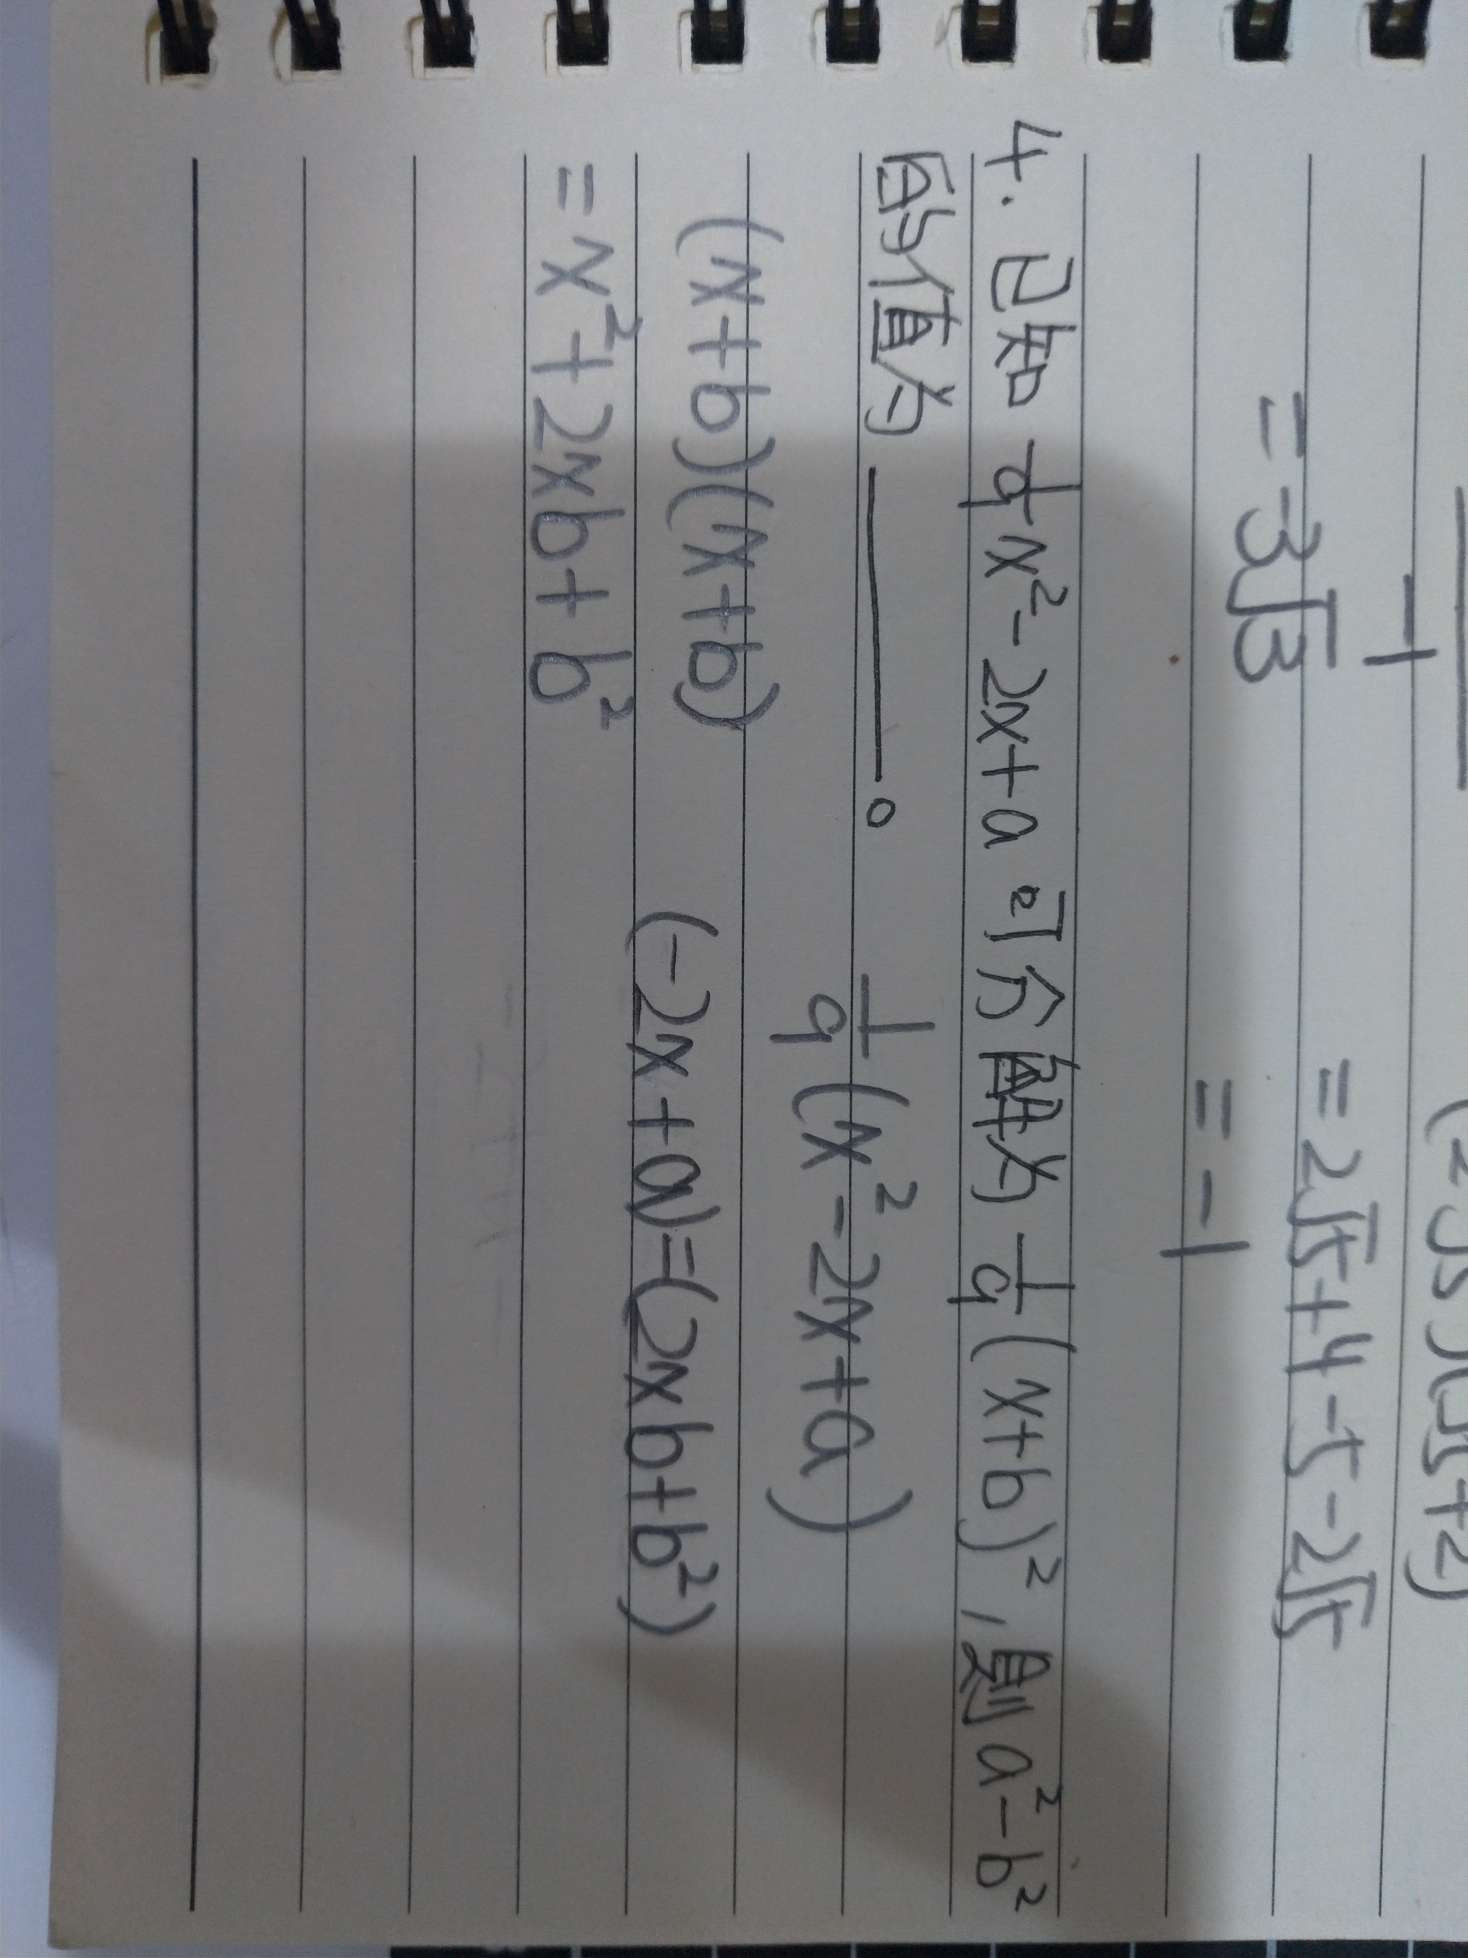 -1
= -3√3
= 2√5+4-5-2√5
= -1
4. 已知 1/9 x²-2x+a 可分解为 1/9 (x+b)², 则 a²-b²
的值为 ______。
1/9 (x²-2x+a)
(x+b)(x+b)
(-2x+a)=(2xb+b²)
= x²+2xb+b²